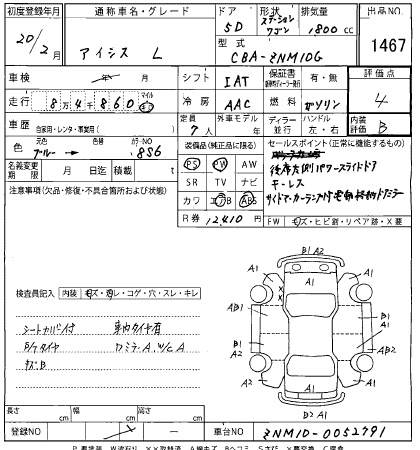 初度登録年月 通称車名・グレード ドア 形状 排気量 出品NO.
20/2月 アイシス L 5D ステーションワゴン 1800cc 1467
型式
CBA-ZNM10G
車検 年 月 シフト IAT 保証書 有・無 評価点
走行 8万4千860 マイル km 冷房 AAC 燃料 ガソリン 4
車歴 自家用・レンタ・事業用( ) 定員 7人 外車モデル 年 ディーラー 並行 ハンドル 左・右 内装評価 B
色 元色 ブルー → 色替 カラーNO 8S6 装備品(純正品に限る) セールスポイント(正常に機能するもの)
名義変更期限 月 日迄 積載 t PS PW AW 後席左側パワースライドドア
注意事項(欠品・修復・不具合箇所および状態) SR TV ナビ キーレス
カワ エアB ABS サイドマーカーランプ付電動格納ドアミラー
R券 12410円 FW キズ・ヒビ割・リペア跡・X要
検査員記入 内装 キズ・汚レ・コゲ・穴・スレ・キレ
シートカバー付 車内タイヤ有
B/Tタイヤ
キズB
B1 A2
A1 A1 A1
AB1 A1
B1 B1
A2 A1 AB2
A1 A1 A1
B2 A1
長さ cm 幅 cm 高さ cm
登録NO ー 車台NO ZNM10-0052791